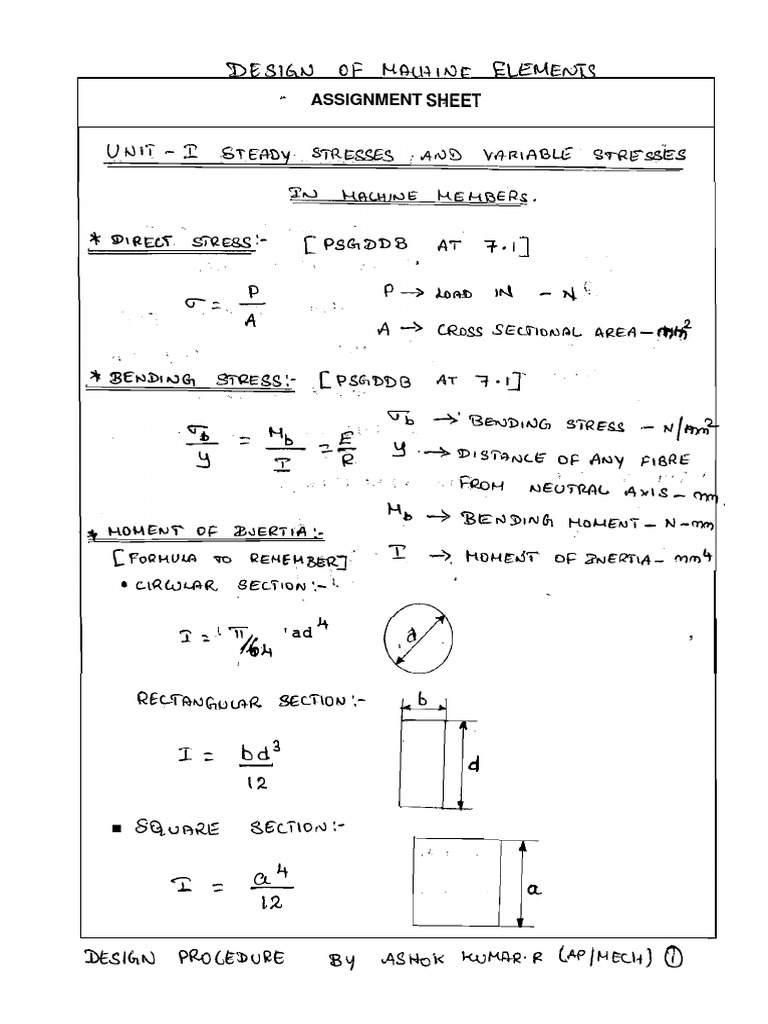 DESIGN OF MACHINE ELEMENTS
ASSIGNMENT SHEET
UNIT - I STEADY STRESSES AND VARIABLE STRESSES
IN MACHINE MEMBERS.
* DIRECT STRESS:- [PSGDDB AT 7.1]
σ = P/A
P → LOAD IN - N
A → CROSS SECTIONAL AREA - mm²
* BENDING STRESS:- [PSGDDB AT 7.1]
σb/y = Mb/I = E/R
σb → BENDING STRESS - N/mm²
y → DISTANCE OF ANY FIBRE
FROM NEUTRAL AXIS - mm
Mb → BENDING MOMENT - N-mm
I → MOMENT OF INERTIA - mm⁴
* MOMENT OF INERTIA:-
[FORMULA TO REMEMBER]
• CIRCULAR SECTION:-
I = π/64 ad⁴
d
RECTANGULAR SECTION:-
b
I = bd³/12
d
■ SQUARE SECTION:-
I = a⁴/12
a
DESIGN PROCEDURE BY ASHOK KUMAR.R (AP/MECH) 1